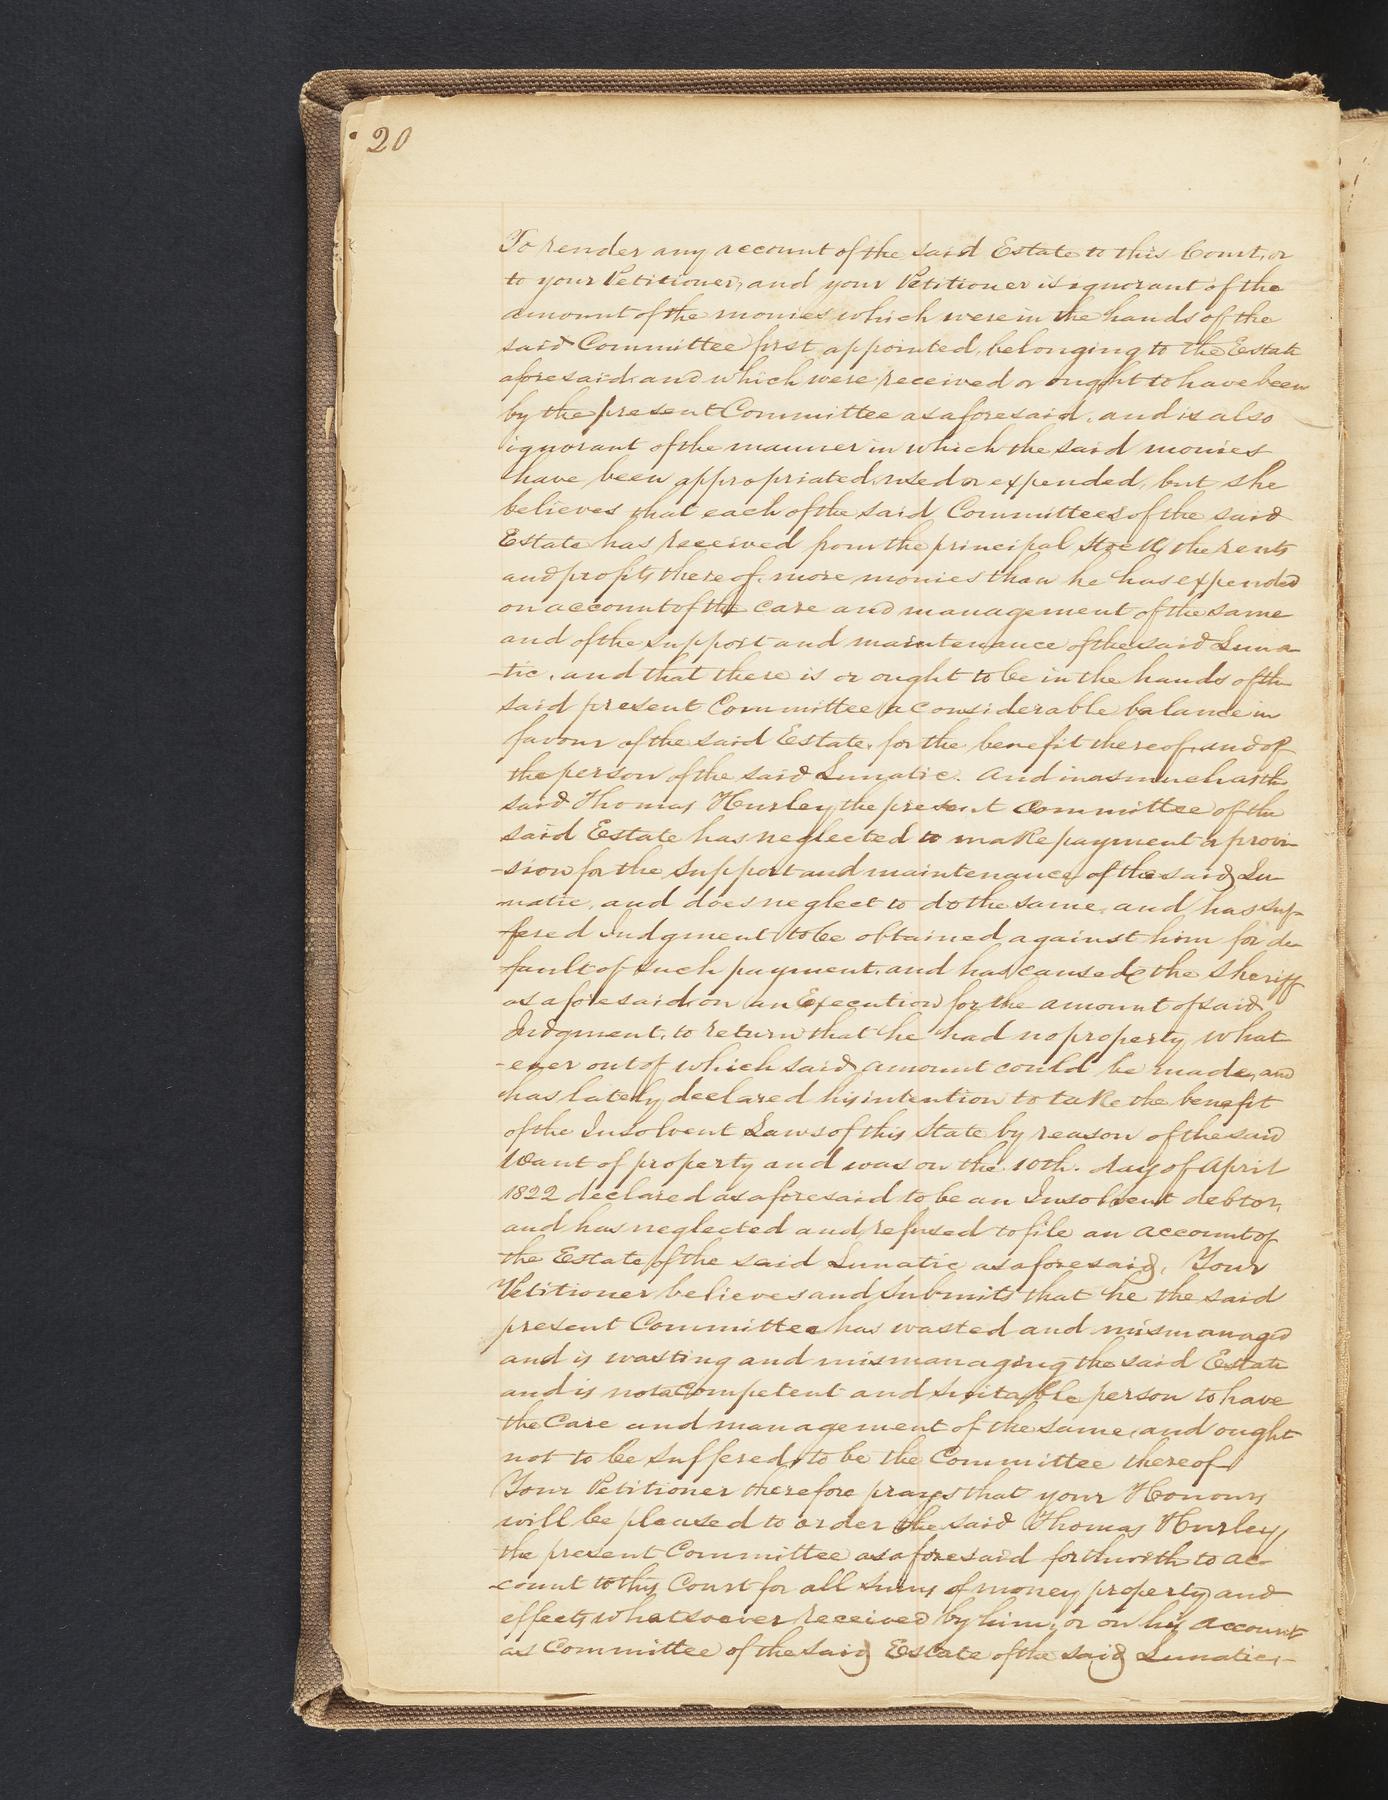 20
To render any account of the said Estate to this Court, or
to your Petitioner, and your Petitioner is ignorant of the
amount of the monies which were in the hands of the
said Committee first appointed, belonging to the Estate
aforesaid and which were received or ought to have been
by the present Committee as aforesaid, and is also
ignorant of the manner in which the said monies
have been appropriated, used or expended, but she
believes that each of the said Committees of the said
Estate has received from the principal Stock, the rents
and profits thereof, more monies than he has expended
on account of the care and management of the same
and of the support and maintenance of the said Luna-
-tic, and that there is or ought to be in the hands of the
said present Committee a considerable balance in
favour of the said Estate, for the benefit thereof, and of
the person of the said Lunatic. And inasmuch as the
said Thomas Hurley the present Committee of the
said Estate has neglected to make payment or provi-
-sion for the support and maintenance of the said Lu-
-natic, and does neglect to do the same, and has suf-
-fered Judgment to be obtained against him for de-
-fault of such payment, and has caused the Sheriff
as aforesaid on an Execution for the amount of said
Judgment, to return that he had no property what
-ever out of which said amount could be made, and
has lately declared his intention to take the benefit
of the Insolvent Laws of this State by reason of the said
want of property and was on the 10th. day of April
1822 declared as aforesaid to be an Insolvent debtor,
and has neglected and refused to file an account of
the Estate of the said Lunatic as aforesaid. Your
Petitioner believes and submits that he the said
present Committee has wasted and mismanaged
and is wasting and mismanaging the said Estate
and is not a Competent and suitable person to have
the Care and management of the same, and ought
not to be suffered to be the Committee thereof
Your Petitioner therefore prays that your Honours
will be pleased to order the said Thomas Hurley,
the present Committee as aforesaid forthwith to ac-
-count to this Court for all sums of money property and
effects whatsoever received by him, or on his account
as Committee of the said Estate of the said Lunatic,-